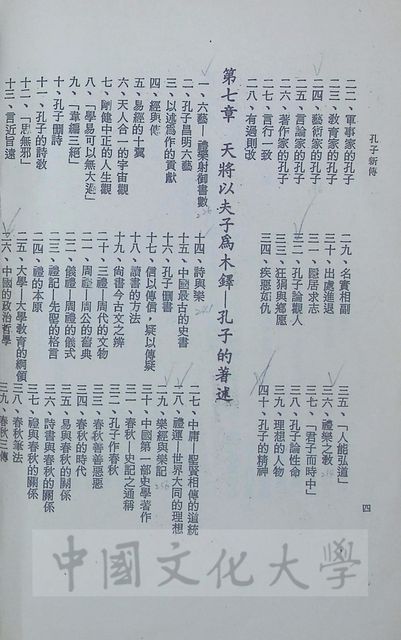 孔子新傳
二二、軍事家的孔子
二三、教育家的孔子
二四、藝術家的孔子
二五、言論家的孔子
二六、著作家的孔子
二七、言行一致
二八、有過則改
二九、名實相副
三十、出處進退
三一、隱居求志
三二、孔子論觀人
三三、狂狷與鄉愿
三四、疾惡如仇
三五、「人能弘道」
三六、禮樂之教
三七、「君子而時中」
三八、孔子論性命
三九、理想的人物
四十、孔子的精神
第七章　天將以夫子爲木鐸—孔子的著述
一、六藝—禮樂射御書數
二、孔子昌明六藝
三、以述爲作的貢獻
四、經與傳
五、易經的十翼
六、天人合一的宇宙觀
七、剛健中正的人生觀
八、「學易可以無大過」
九、「韋編三絕」
十、孔子刪詩
十一、孔子的詩教
十二、「思無邪」
十三、言近旨遠
十四、詩與樂
十五、中國最古的史書
十六、孔子刪書
十七、信以傳信，疑以傳疑
十八、讀書的方法
十九、尚書今古文之辨
二十、三禮—周代的文物
二一、周禮—周公的舊典
二二、儀禮—周禮的儀式
二三、禮記—先聖的格言
二四、禮的本原
二五、大學—大學教育的綱領
二六、中國的政治哲學
二七、中庸—聖賢相傳的道統
二八、禮運—世界大同的理想
二九、樂經與樂記
三十、中國第一部史學著作
三一、春秋—史記之通稱
三二、孔子作春秋
三三、春秋善善惡惡
三四、春秋的時代
三五、易與春秋的關係
三六、詩書與春秋的關係
三七、禮與春秋的關係
三八、春秋筆法
三九、春秋三傳
四
中國文化大學